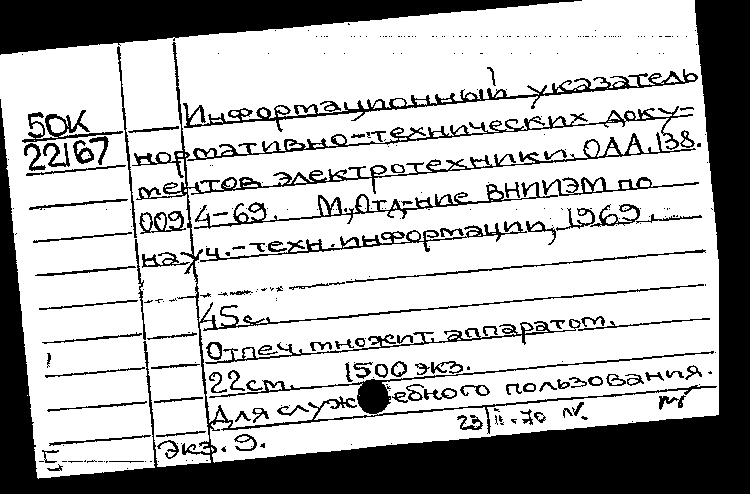 Информационный указатель
50К
22167
нормативно-технических доку=
ментов электротехники. ОАА.138.
009.4-69. М., Отд-ние ВНИИЭМ по
науч.-техн. информации, 1969.
45с.
Отпеч. множит. аппаратом.
22см. 1500 экз.
Для служебного пользования.
23/II-70
Экз. 9.